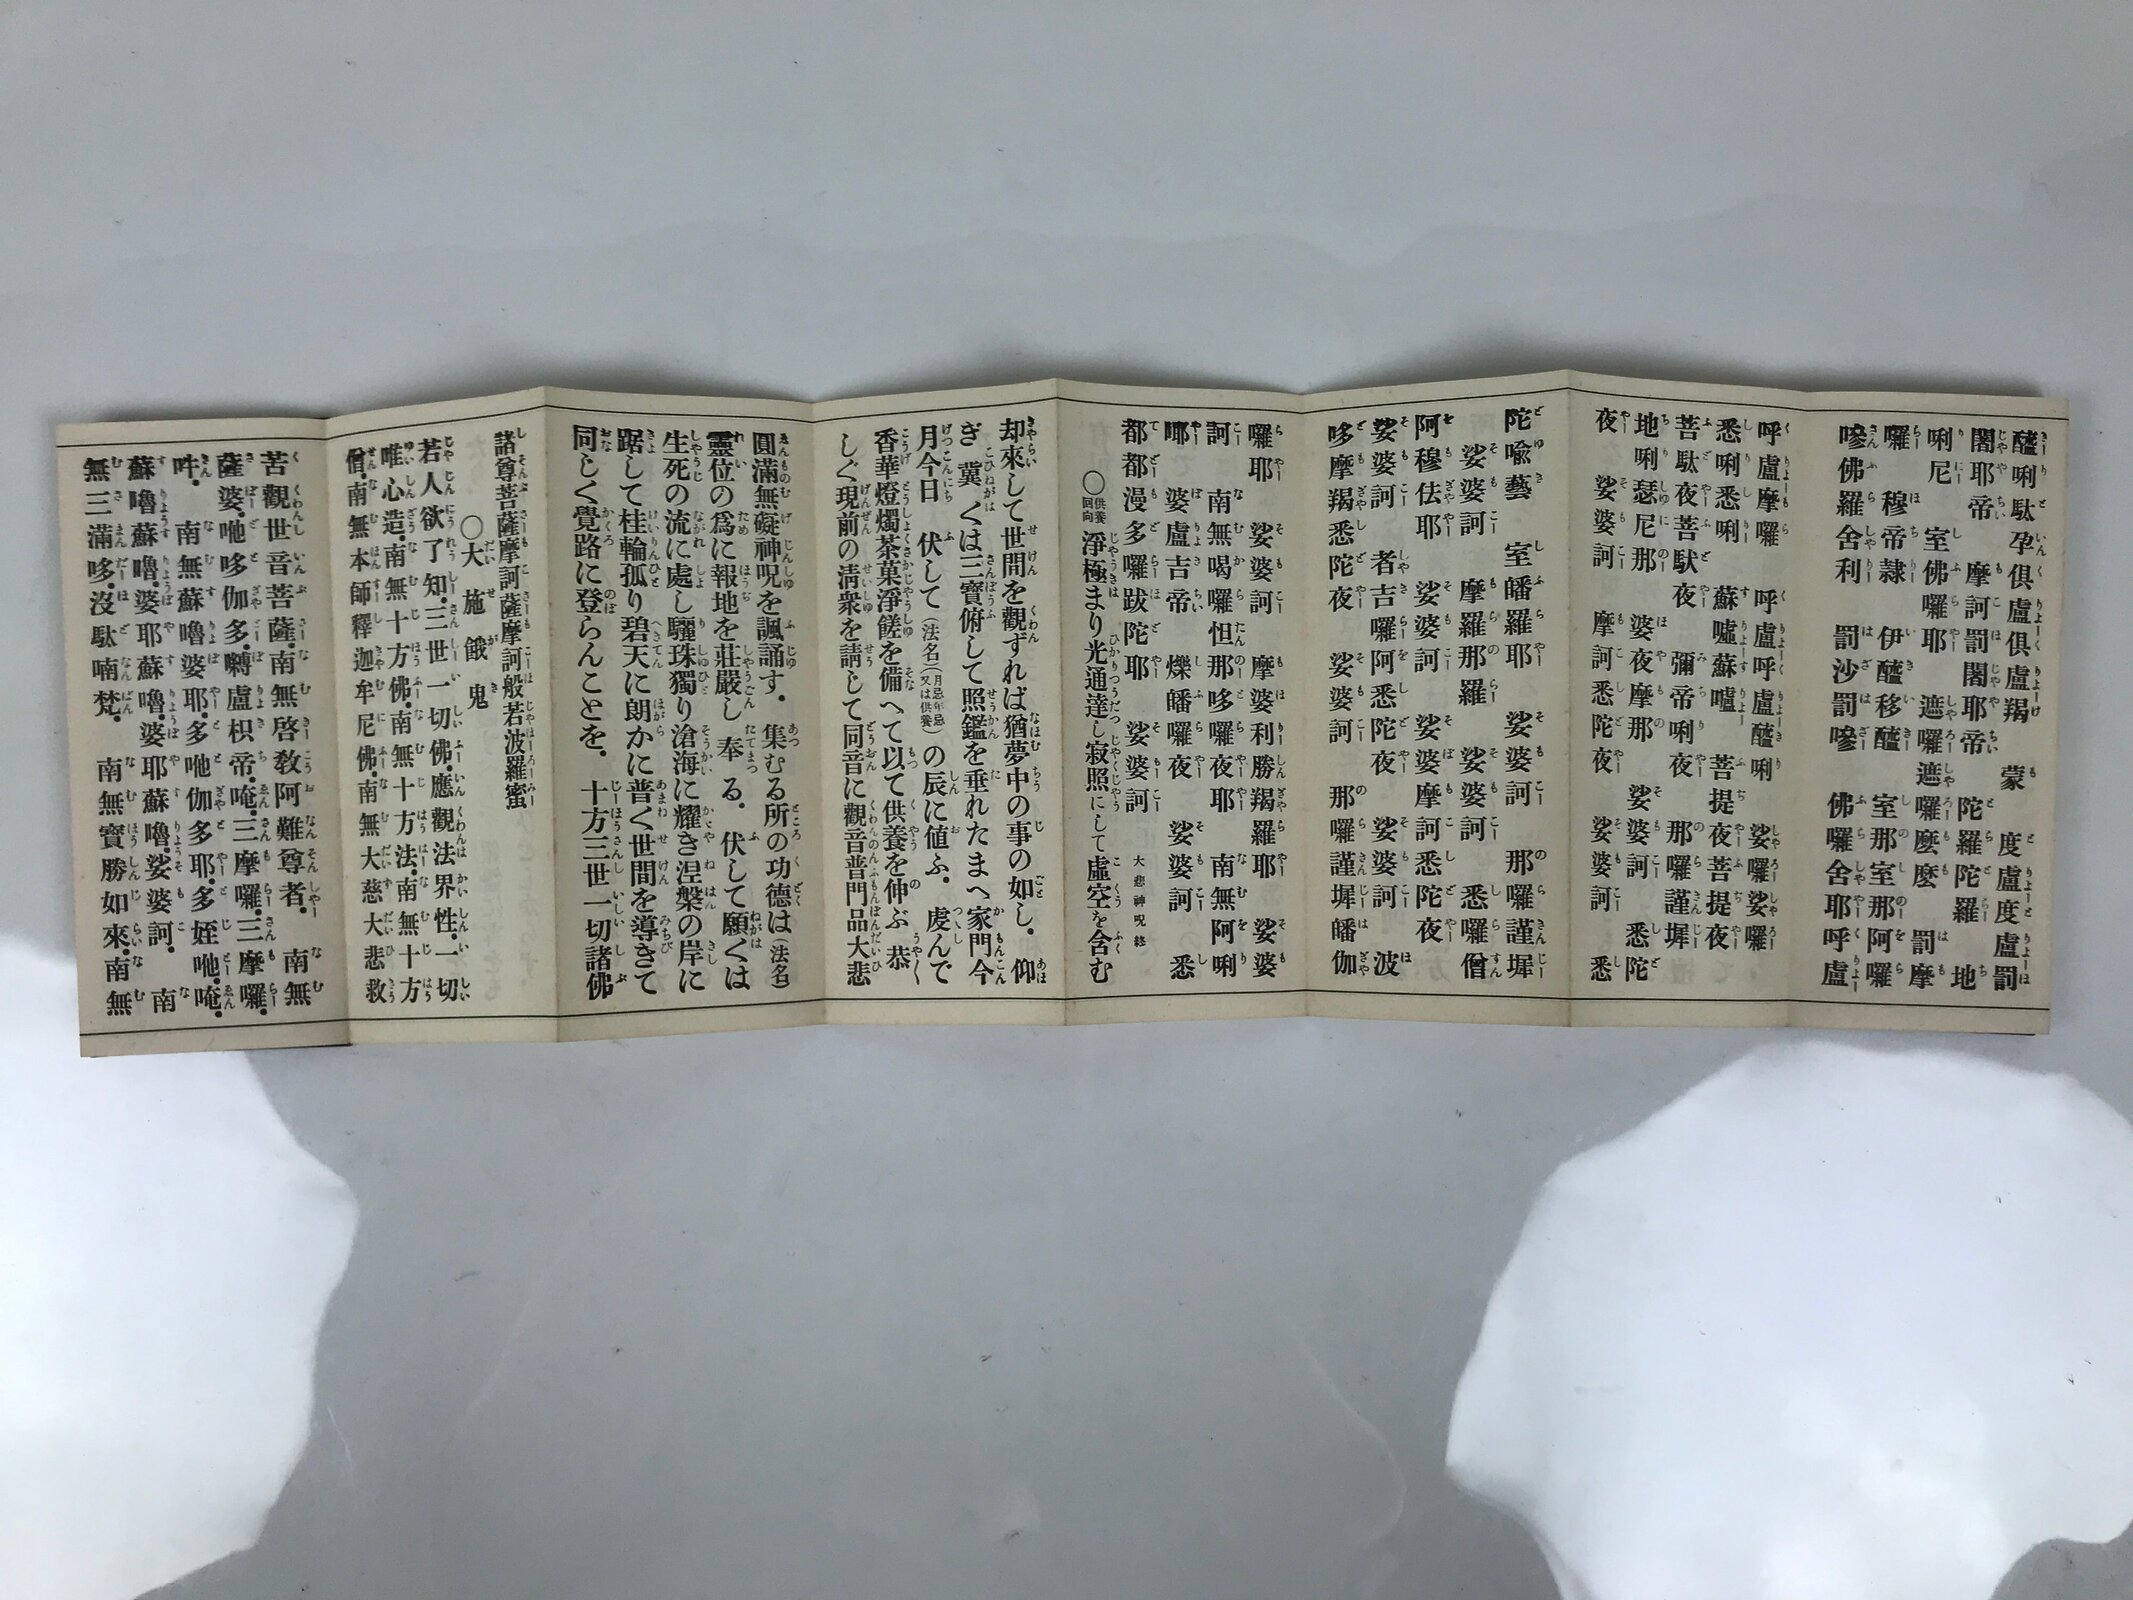 醯唎駄孕倶盧倶盧羯　蒙　度盧度盧罰
闍耶帝　摩訶罰闍耶帝　陀羅陀羅　地
唎尼　室佛囉耶　遮囉遮　囉麼麼　罰摩
囉　穆帝隷　伊醯移醯　室那室那　阿囉
嘇佛羅舍利　罰沙罰嘇　佛囉舍耶　呼盧
呼盧摩囉　呼盧呼盧醯唎　娑囉娑囉
悉唎悉唎　蘇嚧蘇嚧　菩提夜菩提夜
菩駄夜菩駄夜　彌帝唎夜　那囉謹墀
地唎瑟尼那　婆夜摩那　娑婆訶　悉陀
夜　娑婆訶　摩訶悉陀夜　娑婆訶　悉
陀喩藝　室皤羅耶　娑婆訶　那囉謹墀
娑婆訶　摩羅那羅　娑婆訶　悉囉僧
阿穆佉耶　娑婆訶　娑婆摩訶悉陀夜
娑婆訶　者吉囉阿悉陀夜　娑婆訶　波
哆摩羯悉陀夜　娑婆訶　那囉謹墀皤伽
囉耶　娑婆訶　摩婆利勝羯羅耶　娑婆
訶　南無喝囉怛那哆囉夜耶　南無阿唎
㖿　婆盧吉帝　爍皤囉夜　娑婆訶　悉
都都漫多囉跋陀耶　娑婆訶　大悲神呪終
〇供養回向　淨極まり光通達し寂照にして虛空を含む
却來して世間を觀ずれば猶夢中の事の如し．　仰
ぎ　冀くは三寶俯して照鑑を垂れたまへ家門今
月今日　伏して（法名）（月忌年忌又は供養）の辰に値ふ．虔んで
香華燈燭茶菓淨饈を備へて以て供養を伸ぶ　恭
しく現前の淸衆を請して同音に觀音普門品大悲
圓滿無礙神呪を諷誦す．　集むる所の功德は（法名）
靈位の爲に報地を莊嚴し　奉る．　伏して願くは
生死の流に處し驪珠獨り滄海に耀き涅槃の岸に
踞して桂輪孤り碧天に朗かに普く世間を導きて
同じく覺路に登らんことを．　十方三世一切諸佛
諸尊菩薩摩訶薩摩訶般若波羅蜜
〇大施餓鬼
若人欲了知．三世一切佛．應觀法界性．一切
唯心造．南無十方佛．南無十方法．南無十方
僧．南無本師釋迦牟尼佛．南無大慈大悲救
苦觀世音菩薩．南無啓敎阿難尊者．　南無
薩婆．咃哆伽多．嚩盧枳帝．唵．三摩囉．三摩囉．
吽．　南無蘇嚕婆耶．多咃伽多耶．多姪咃．唵．
蘇嚕蘇嚕．婆耶蘇嚕．婆耶蘇嚕．娑婆訶．　南
無三滿哆．沒駄喃梵．　南無寶勝如來．南無